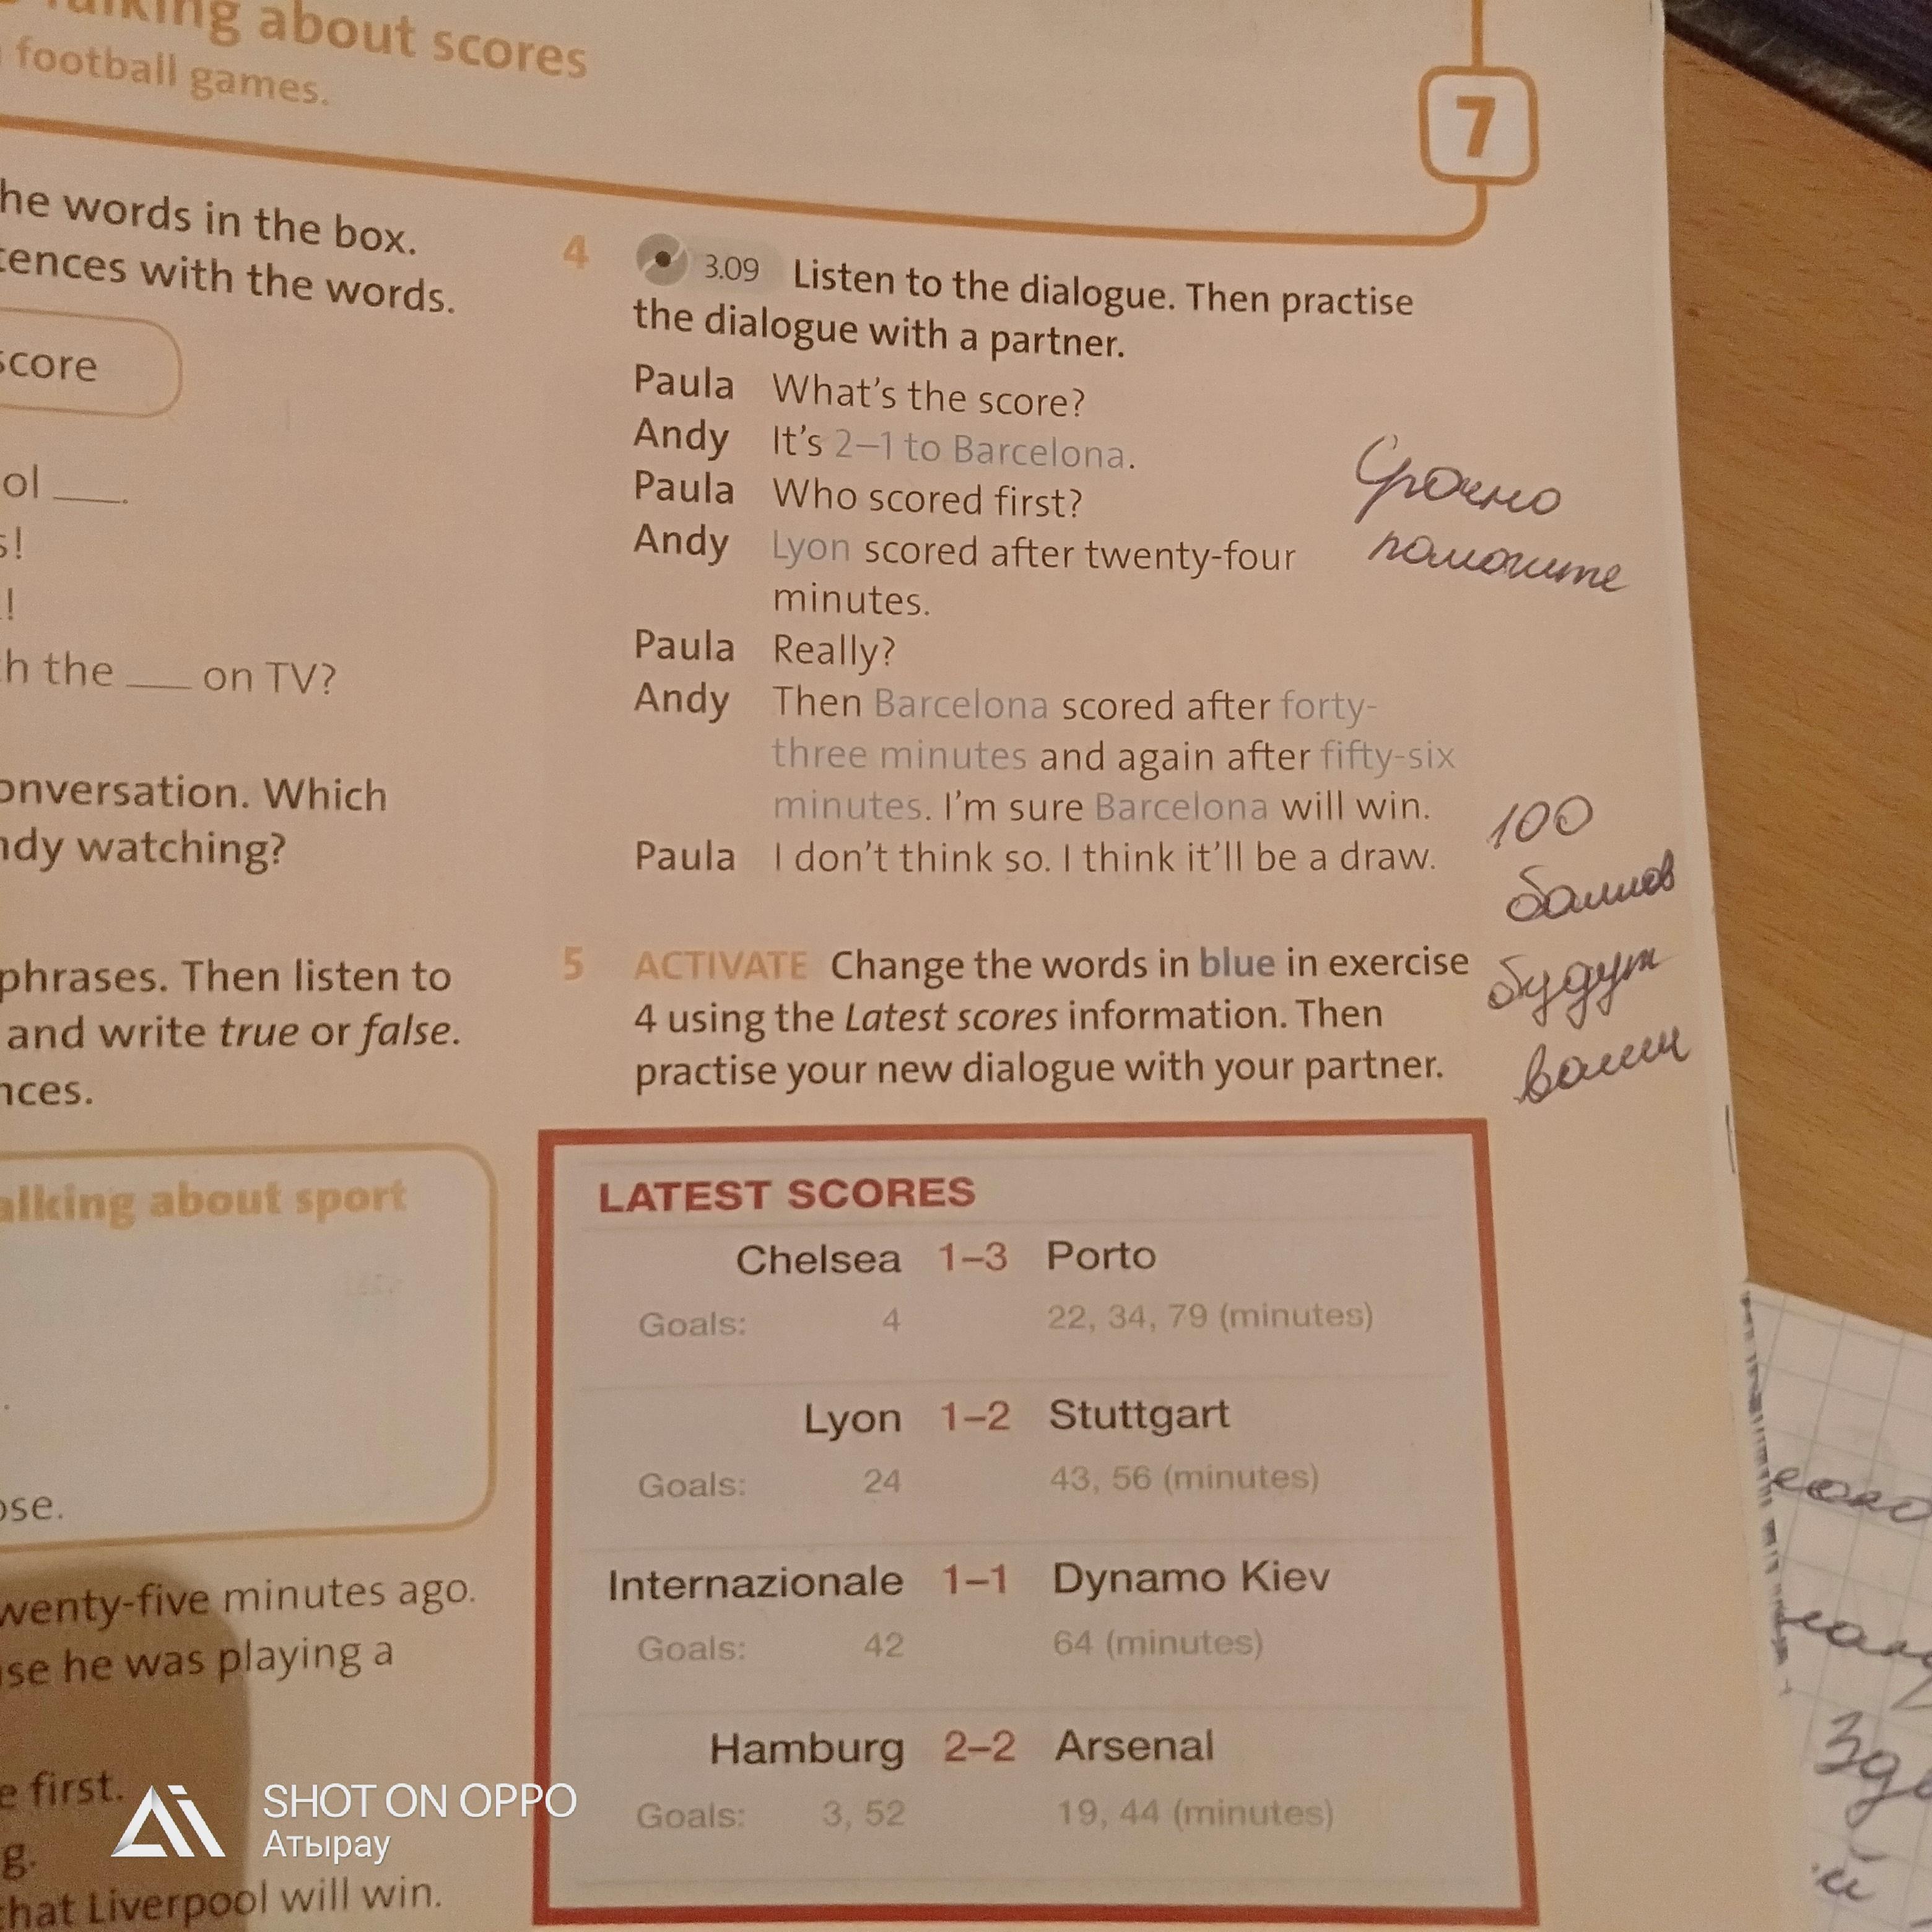 about scores
football games.
7
he words in the box.
tences with the words.
score
ol ___.
s!
!
h the ___ on TV?
onversation. Which
ndy watching?
phrases. Then listen to
and write true or false.
nces.
alking about sport
ose.
wenty-five minutes ago.
use he was playing a
e first.
g.
that Liverpool will win.
4 3.09 Listen to the dialogue. Then practise
the dialogue with a partner.
Paula What's the score?
Andy It's 2–1 to Barcelona.
Paula Who scored first?
Andy Lyon scored after twenty-four
minutes.
Paula Really?
Andy Then Barcelona scored after forty-
three minutes and again after fifty-six
minutes. I'm sure Barcelona will win.
Paula I don't think so. I think it'll be a draw.
Срочно
помогите
100
баллов
будут
ваши
5 ACTIVATE Change the words in blue in exercise
4 using the Latest scores information. Then
practise your new dialogue with your partner.
LATEST SCORES
Chelsea 1–3 Porto
Goals: 4 22, 34, 79 (minutes)
Lyon 1–2 Stuttgart
Goals: 24 43, 56 (minutes)
Internazionale 1–1 Dynamo Kiev
Goals: 42 64 (minutes)
Hamburg 2–2 Arsenal
Goals: 3, 52 19, 44 (minutes)
SHOT ON OPPO
Атырау